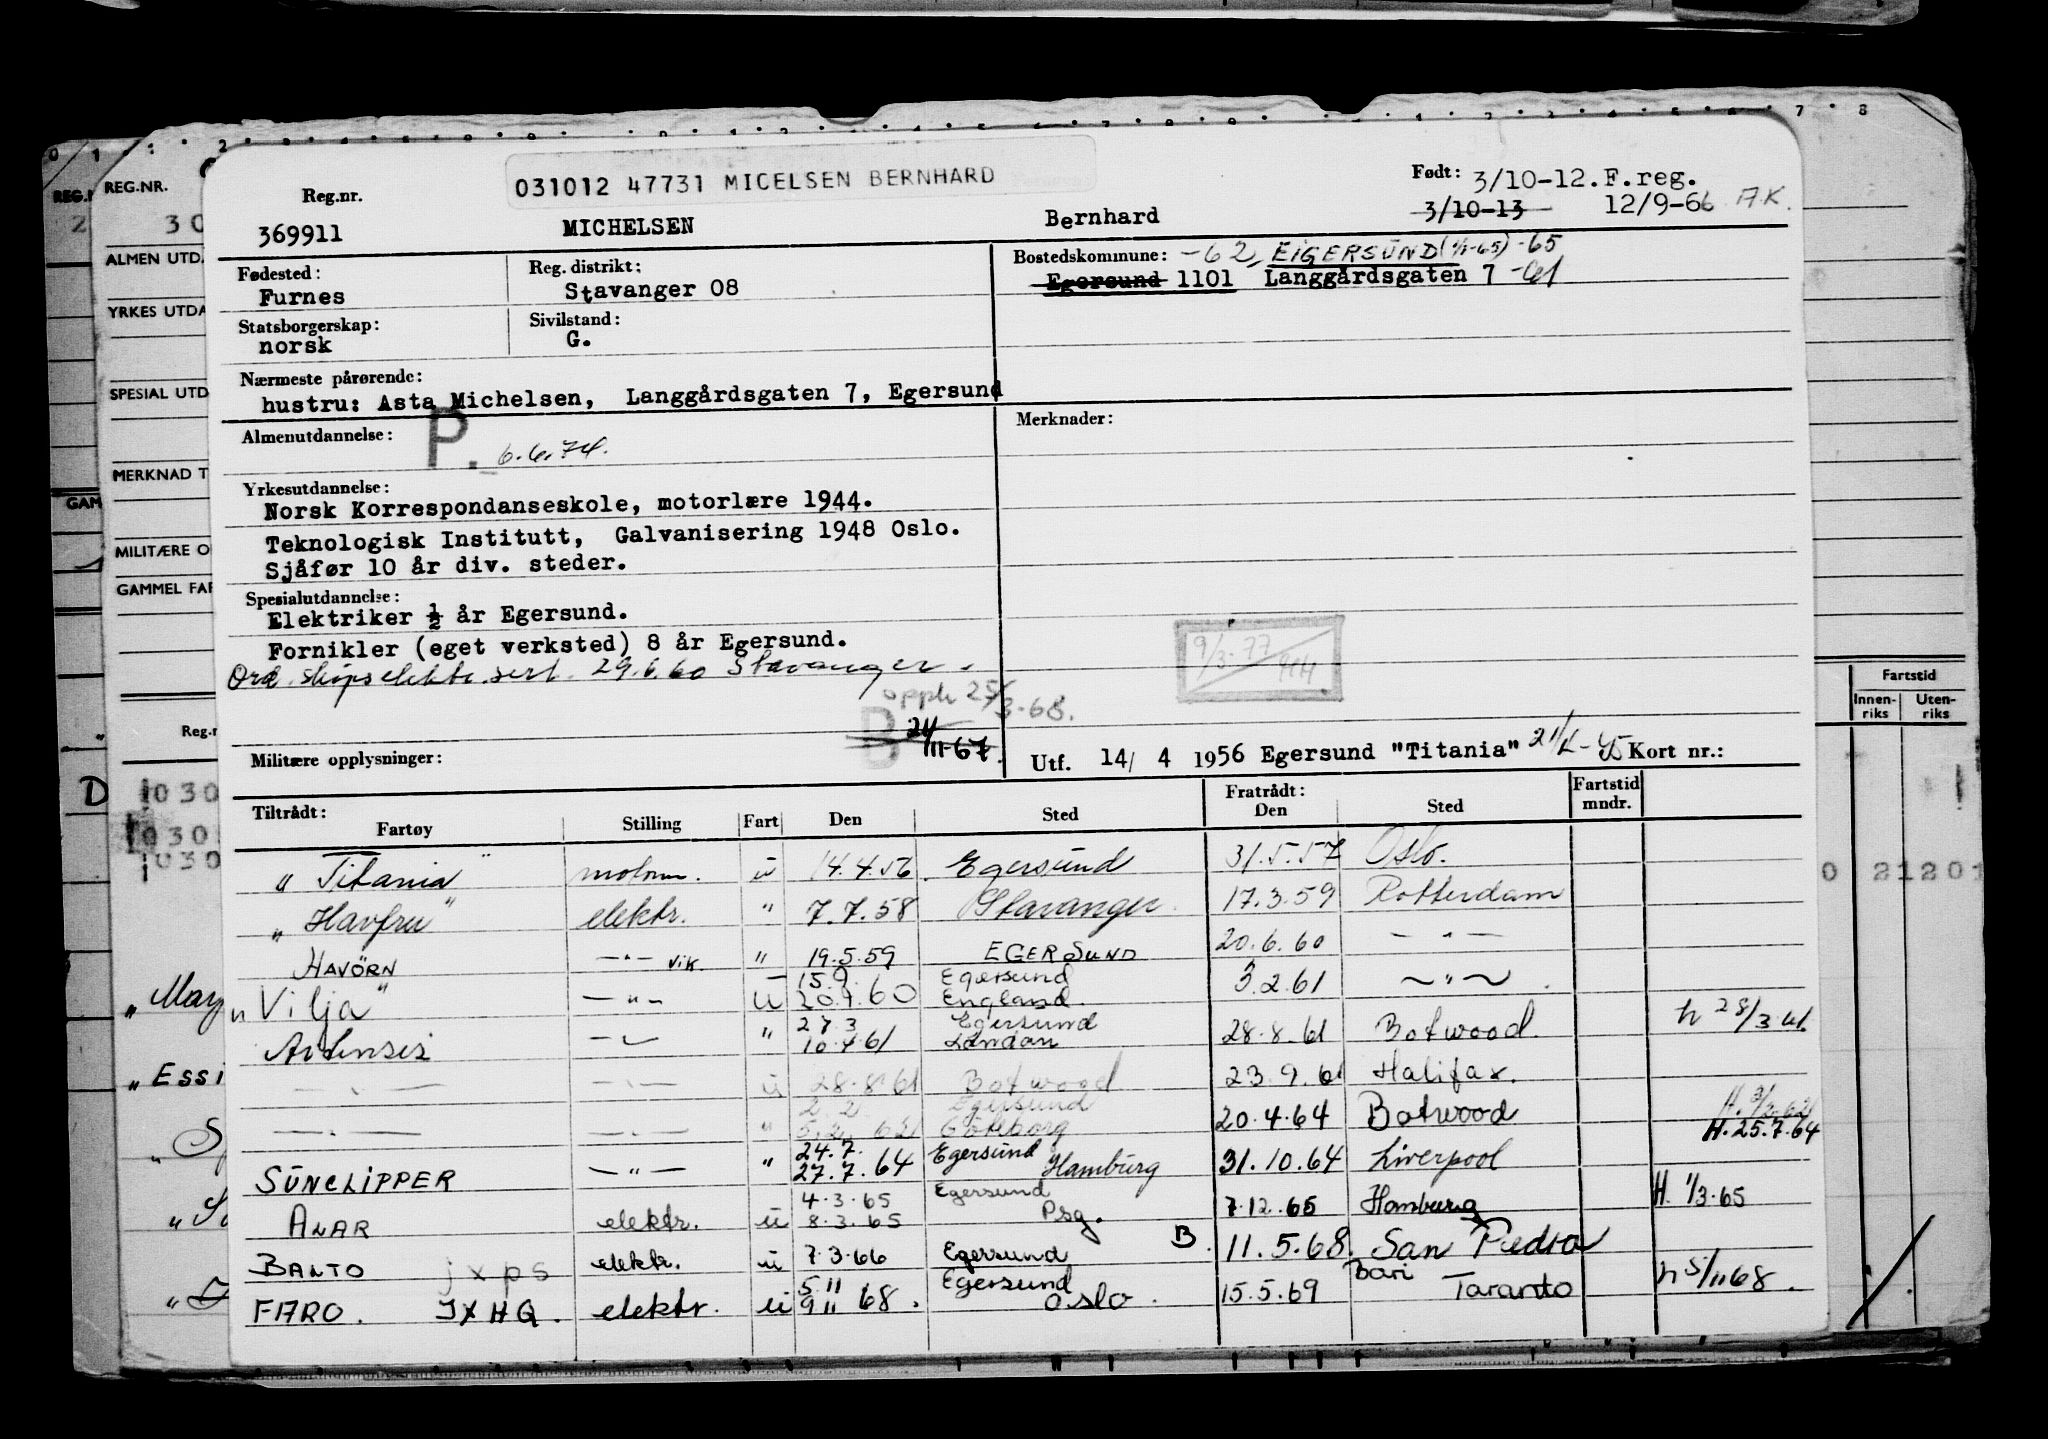 031012 47731 MICELSEN BERNHARD
Født: 3/10-12. F.reg.
3/10-13 12/9-66 A.K.
Reg.nr.
369911 MICHELSEN Bernhard
Fødested: Furnes
Reg. distrikt: Stavanger 08
Bostedskommune: -62, EIGERSUND (1/1-65) -65
Egersund 1101 Langgårdsgaten 7 -61
Statsborgerskap: norsk
Sivilstand: G.
Nærmeste pårørende:
hustru: Asta Michelsen, Langgårdsgaten 7, Egersund
Almenutdannelse: P. 6.6.74.
Merknader:
Yrkesutdannelse:
Norsk Korrespondanseskole, motorlære 1944.
Teknologisk Institutt, Galvanisering 1948 Oslo.
Sjåfør 10 år div. steder.
Spesialutdannelse:
Elektriker ½ år Egersund.
Fornikler (eget verksted) 8 år Egersund.
Ord. skipselektr. sert. 29.6.60 Stavanger.
9/3-77
opph 25/3-68.
B 24/11-67.
Militære opplysninger:
Utf. 14/ 4 1956 Egersund "Titania" Kort nr.:
Tiltrådt: Fratrådt:
Fartøy Stilling Fart Den Sted Den Sted Fartstid mndr.
"Titania" motorm. u 14.4.56 Egersund 31.5.57 Oslo.
"Havfru" elektr. " 7.7.58 Stavanger 17.3.59 Rotterdam
HAVÖRN — " — vik. " 19.5.59 EGERSUND 20.6.60 — " —
"Vilja" — " — u 15.9. 20.9.60 Egersund England. 3.2.61 — " —
— " 27.3 10.4.61 Egersund London 28.8.61 Botwood. h 28/3 61.
— " — — " — u 28.8.61 Botwood 23.9.61 Halifax.
— " — — " — " 2.2. 5.2. 62 Egersund Göteborg 20.4.64 Botwood H. 3/2.62
H. 25.7.64
SUNCLIPPER — " — " 24.7. 27.7.64 Egersund Hamburg 31.10.64 Liverpool
ALAR elektr. u 4.3.65 8.3.65 Egersund Psg. 7.12.65 Hamburg H. 1/3-65
BALTO jxps elektr. u 7.3.66 Egersund B. 11.5.68. San Pedro
FARO. JXHQ. elektr. u 5.11 9.11 68. Egersund Oslo. 15.5.69 Bari Taranto h 5/11 68.
REG.NR.
ALMEN UTD.
YRKES UTDA
SPESIAL UTD
MERKNAD T
GAM
MILITÆRE O
GAMMEL FAR
Reg.n
Fartstid
Innen-riks Uten-riks
D
030
030
030
0 21201
"May
"Essi